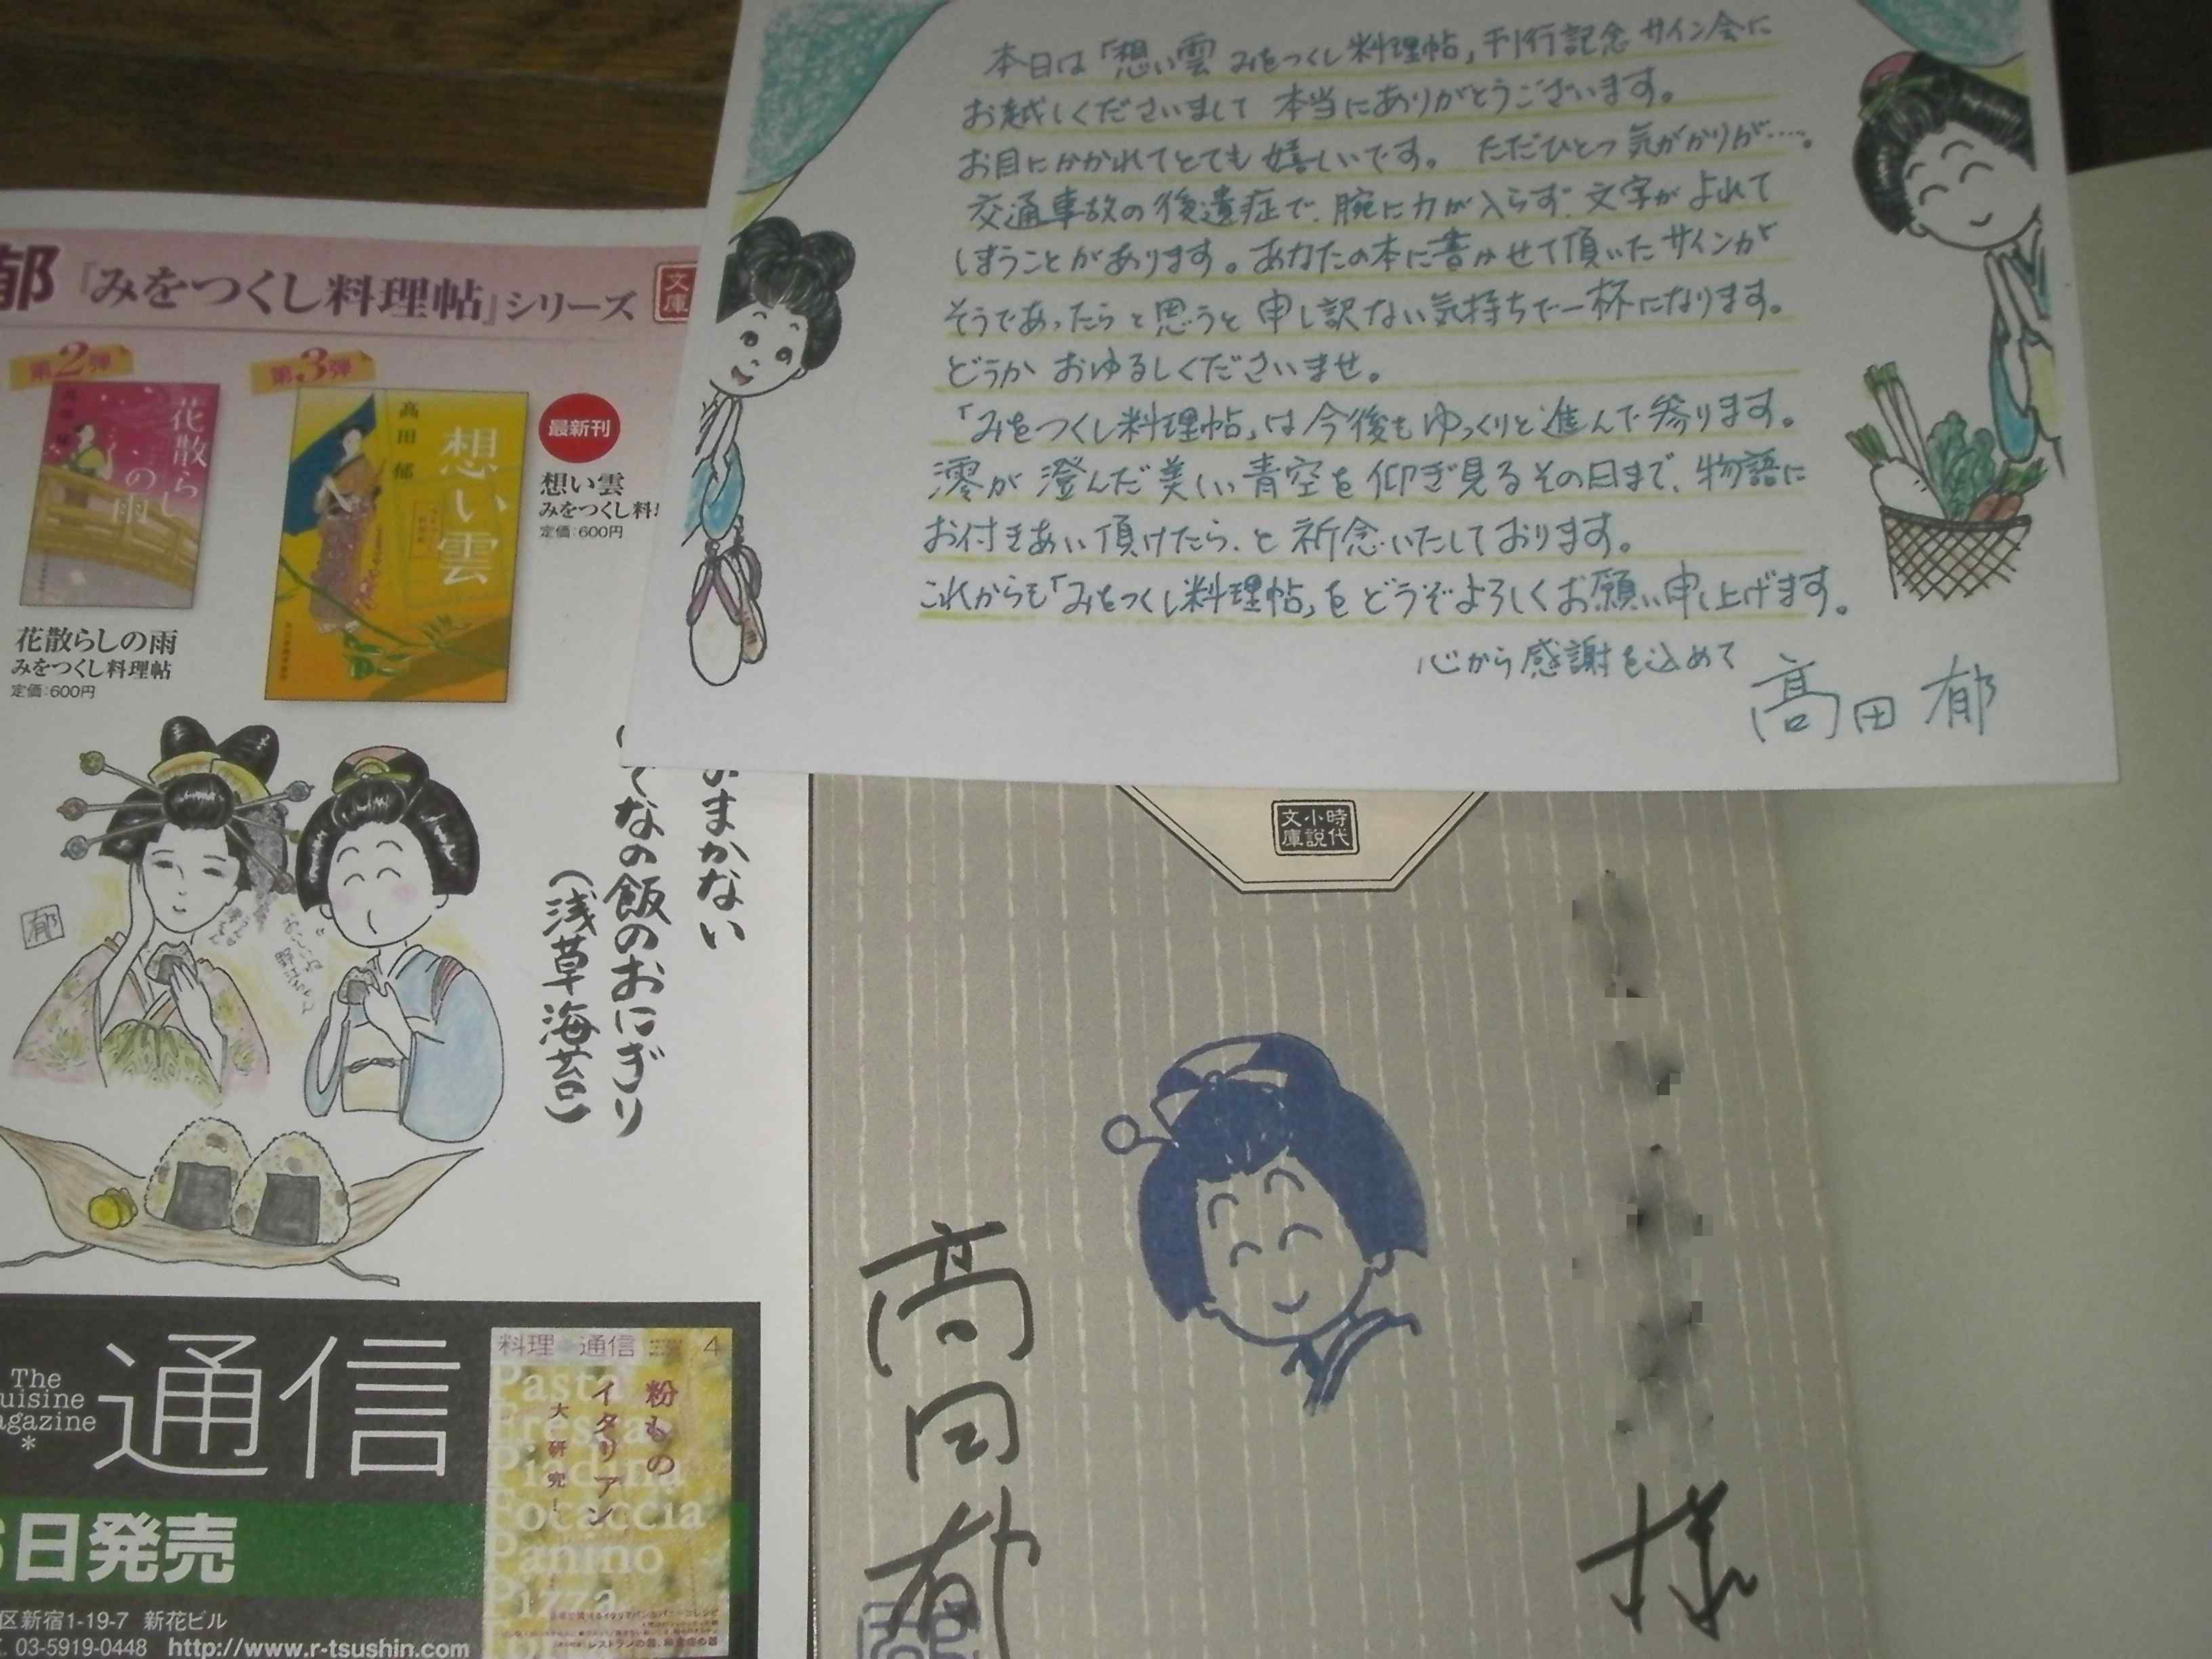 本日は「想い雲 みをつくし料理帖」刊行記念 サイン会に
お越しくださいまして 本当にありがとうございます。
お目にかかれてとても嬉しいです。 ただひとつ気がかりが……。
交通事故の後遺症で、腕に力が入らず、文字がよれて
しまうことがあります。あなたの本に書かせて頂いたサインが
そうであったらと思うと 申し訳ない気持ちで一杯になります。
どうか おゆるしくださいませ。
「みをつくし料理帖」は今後もゆっくりと進んで参ります。
澪が 澄んだ美しい青空を仰ぎ見るその日まで、物語に
お付きあい頂けたら、と祈念いたしております。
これからも「みをつくし料理帖」をどうぞよろしくお願い申し上げます。
心から感謝を込めて 髙田 郁
郁『みをつくし料理帖』シリーズ
文庫
第2弾
花散らしの雨
第3弾
高田郁
想い雲
最新刊
想い雲
みをつくし料
定価:600円
花散らしの雨
みをつくし料理帖
定価:600円
まかない
てなの飯のおにぎり
(浅草海苔)
郁
おいしいね
野江ちゃん
時代小説文庫
様
髙田郁
The
uisine
agazine
*
通信
6日発売
区新宿1-19-7 新花ビル
03-5919-0448 http://www.r-tsushin.com
料理 通信 4
粉もの
イタリアン
大研究!
Pasta
Fresca
Piadina
Focaccia
Panino
Pizza